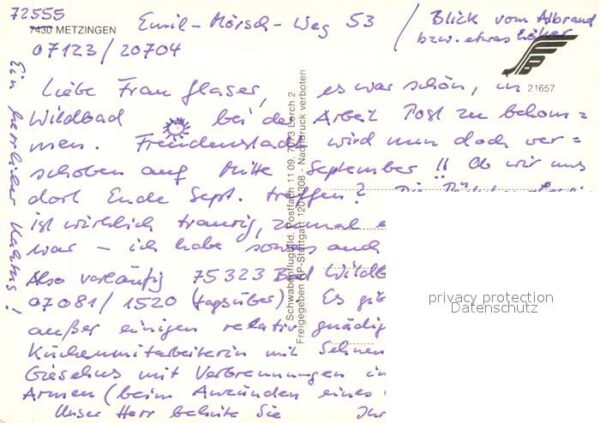 72555 Emil-Mörsch-Weg 53 / Blick vom Albrand
7430 METZINGEN bzw. etwas höher
07123/20704
21657
Liebe Frau Glaser, es war schön, in
Wildbad bei der Arbeit Post zu bekom=
men. Freudenstadt wird nun doch ver=
schoben auf Mitte September!! Ob wir uns
dort Ende Sept. treffen? Die
ist wirklich traurig, zumal
war – ich habe sowas auch
Also vorläufig 75323 Bad Wildb
07081/1520 (tagsüber). Es gib
außer einigen relativ gnädig
Küchenmitarbeiterin mit Sehnen
mit Verbrennungen in
Armen (beim Anzünden eines
Unser Herr behüte Sie Ihr
Ein herrlicher Kaktus!
Schwabenflugbild, Postfach 11 09, 7073 Lorch 2
Freigegeben RP-Stuttgart 120/1308 - Nachdruck verboten
privacy protection
Datenschutz